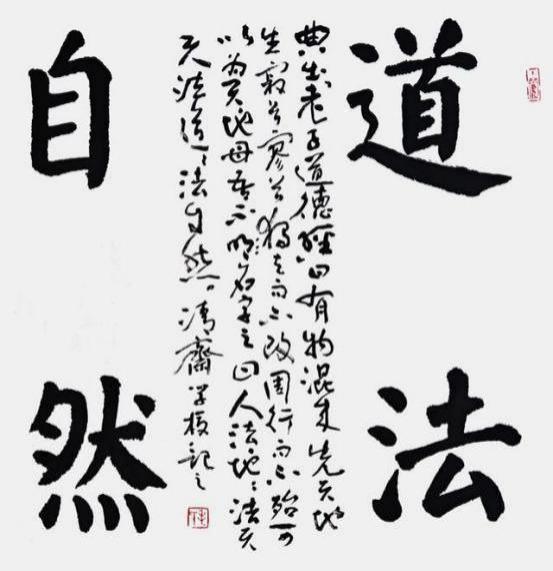 道法
典出老子道德經曰有物混成先天地
生寂兮寥兮独立而不改周行而不殆可
以為天地母吾不名字之曰人法地〻法天
天法道〻法自然。齋記之
自然